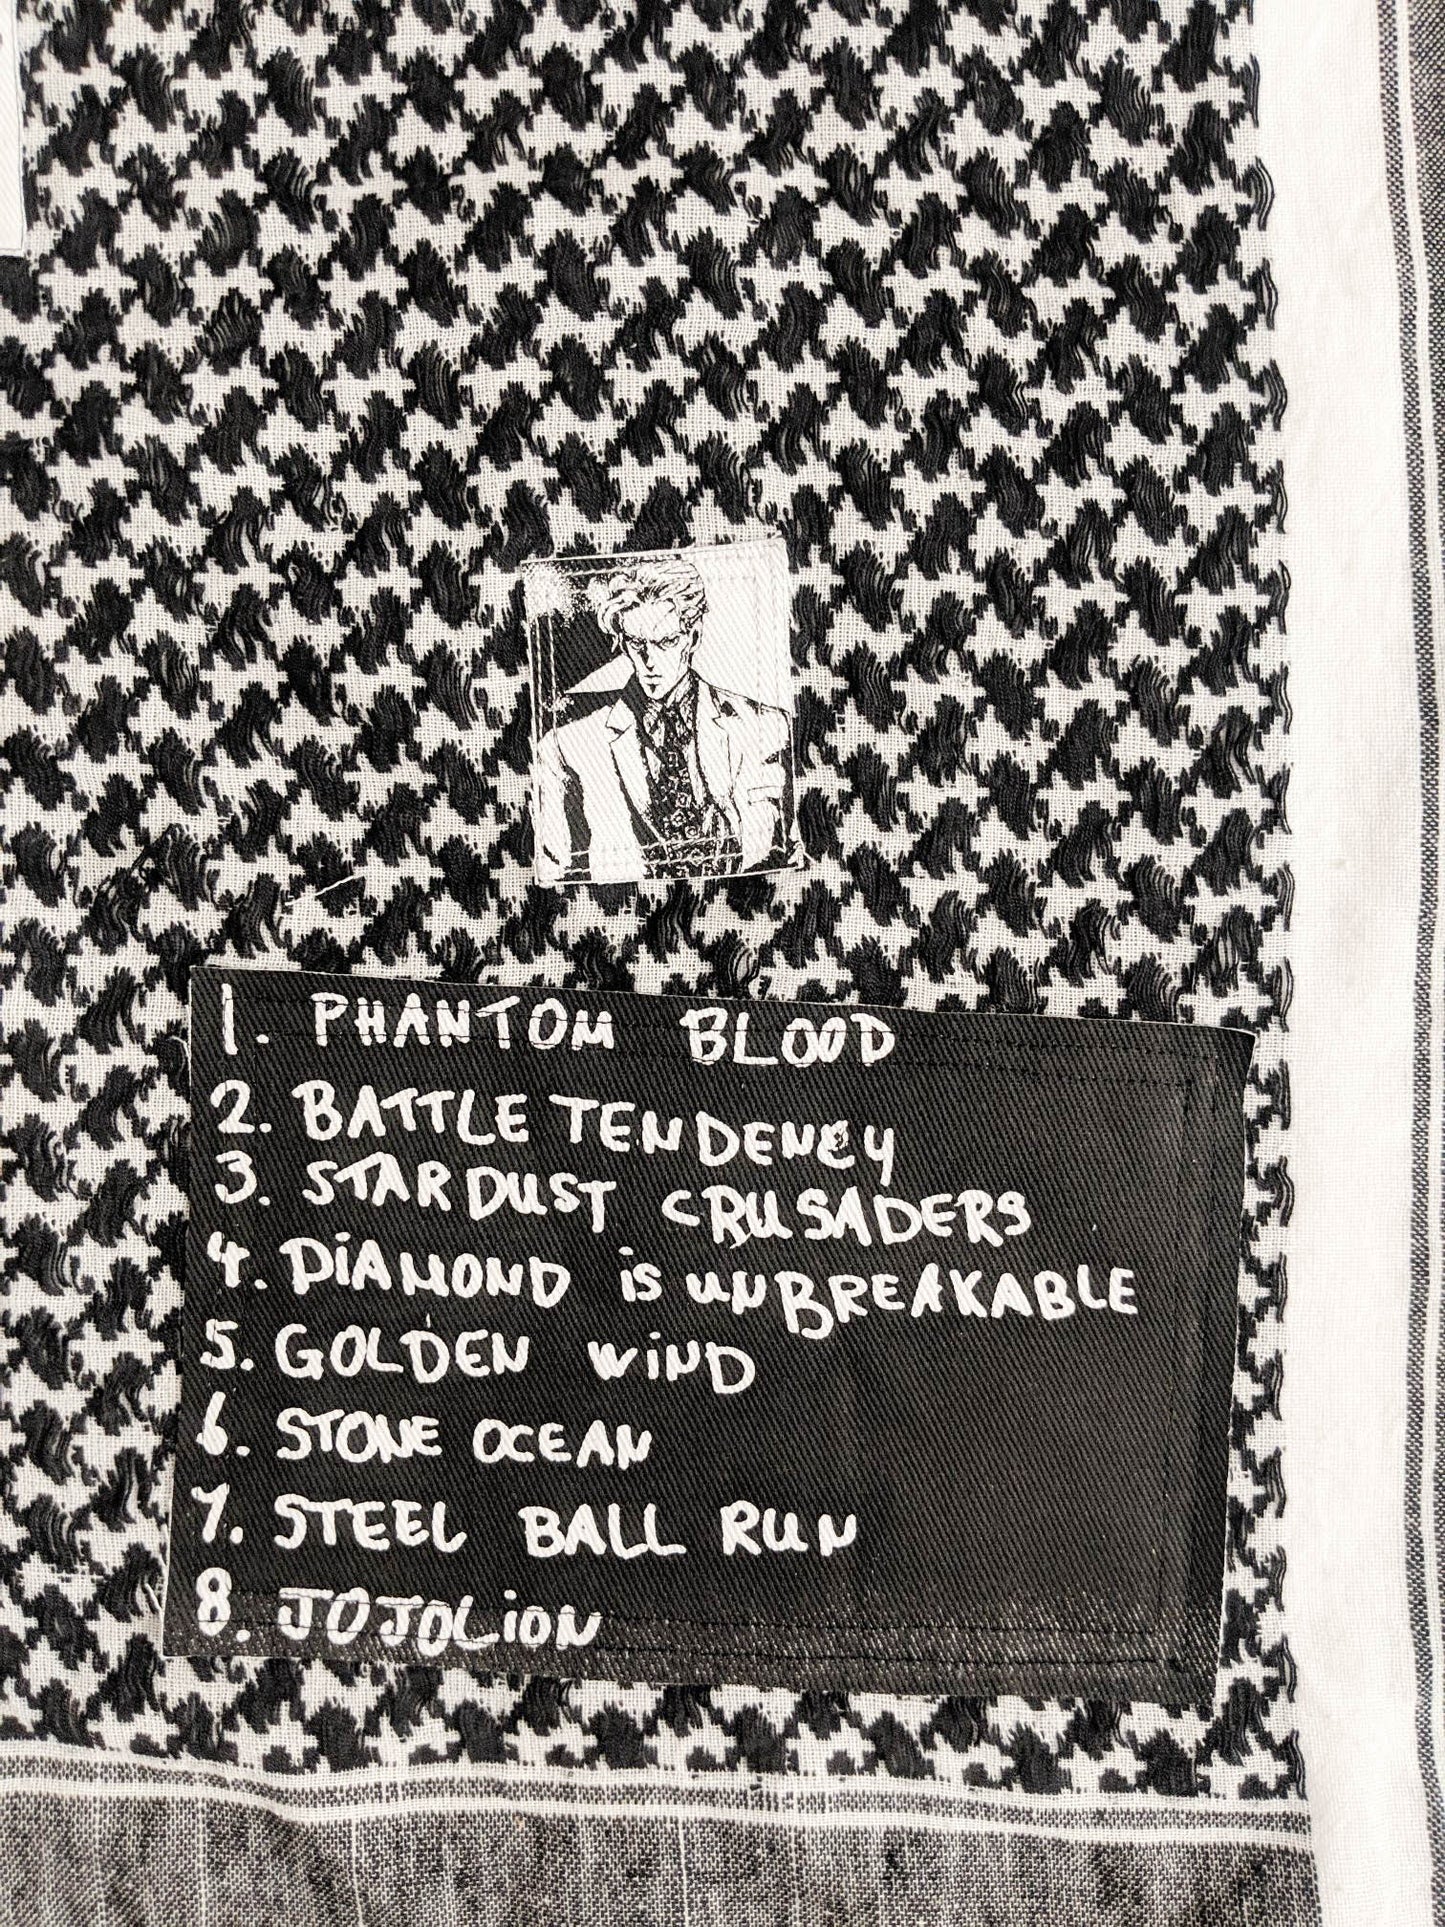 1. PHANTOM BLOOD
2. BATTLE TENDENCY
3. STARDUST CRUSADERS
4. DiAMOND is unBREAKABLE
5. GOLDEN WiND
6. STONE OCEAN
7. STEEL BALL RUN
8. JOJOLiON